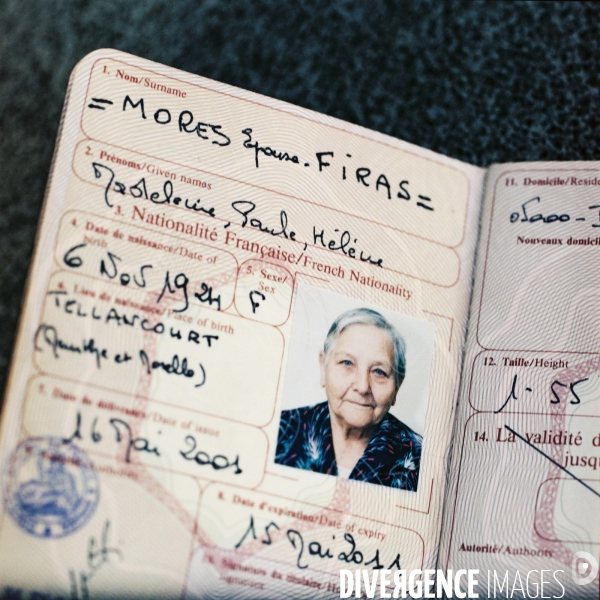 1. Nom/Surname
= MORES Epouse. FIRAS =
2. Prénoms/Given names
Madeleine, Paule, Hélène
3. Nationalité Française/French Nationality
4. Date de naissance/Date of birth
6 Nov 1924
5. Sexe/Sex
F
6. Lieu de naissance/Place of birth
TELLANCOURT
(Meurthe et Moselle)
7. Date de délivrance/Date of issue
16 Mai 2001
8. Date d'expiration/Date of expiry
15 Mai 2011
9. Signature du titulaire/
11. Domicile/Reside
05000 -
Nouveaux domicil
12. Taille/Height
1.55
14. La validité d
jusqu
Autorité/Authority
DIVERGENCE IMAGES
D